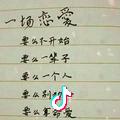 一场恋爱
要么不开始
要么一辈子
要么一个人
要么别
要么